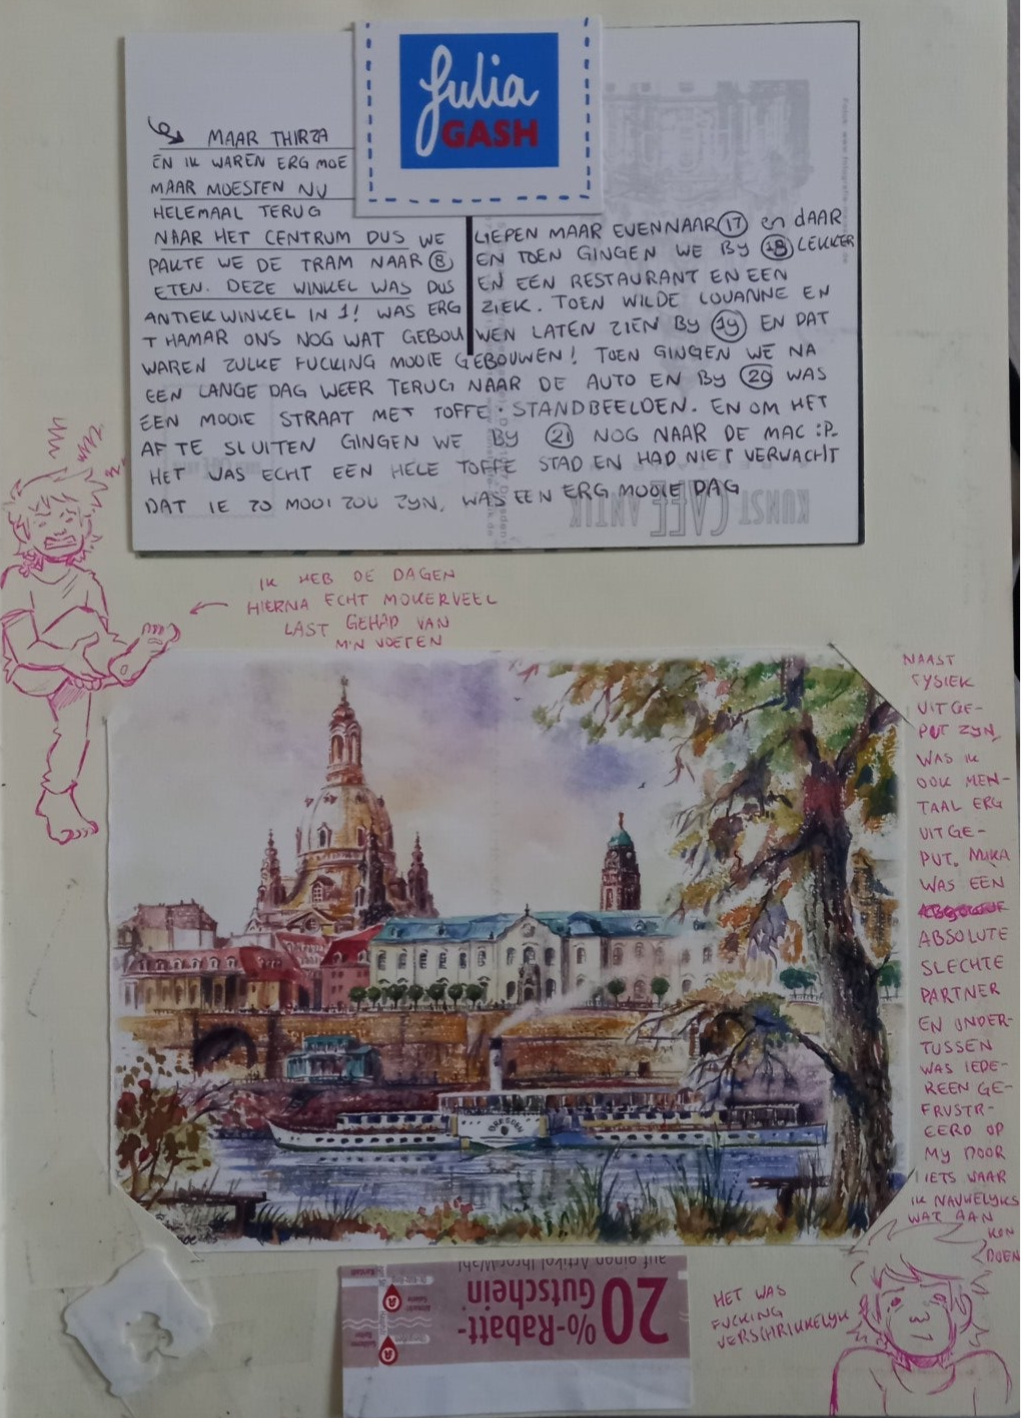 Julia
GASH
MAAR THIRZA
EN IK WAREN ERG MOE
MAAR MOESTEN NU
HELEMAAL TERUG
NAAR HET CENTRUM DUS WE LIEPEN MAAR EVENNAAR 17 en dAAR
PAKTE WE DE TRAM NAAR 8 EN TOEN GINGEN WE BY 18 LEKKER
ETEN. DEZE WINKEL WAS DUS EN EEN RESTAURANT EN EEN
ANTIEKWINKEL IN 1! WAS ERG ZIEK. TOEN WILDE LOUANNE EN
THAMAR ONS NOG WAT GEBOUWEN LATEN ZIEN BY 19 EN DAT
WAREN ZULKE FUCKING MOOIE GEBOUWEN! TOEN GINGEN WE NA
EEN LANGE DAG WEER TERUG NAAR DE AUTO EN BY 20 WAS
EEN MOOIE STRAAT MET TOFFE STANDBEELDEN. EN OM HET
AF TE SLUITEN GINGEN WE BY 21 NOG NAAR DE MAC :P.
HET WAS ECHT EEN HELE TOFFE STAD EN HAD NIET VERWACHT
DAT IE ZO MOOI ZOU ZYN, WAS EEN ERG MOOIE DAG
KUNST CAFE ANTIK
IK HEB DE DAGEN
HIERNA ECHT MOKERVEEL
LAST GEHAD VAN
M'N VOETEN
NAAST
FYSIEK
UITGE-
PUT ZYN,
WAS IK
OOK MEN-
TAAL ERG
UITGE-
PUT. MIKA
WAS EEN
ABSOLUTE
SLECHTE
PARTNER
EN ONDER-
TUSSEN
WAS IEDE-
REEN GE-
FRUSTR-
EERD OP
MY DOOR
IETS WAAR
IK NAUWELYKS
WAT AAN
KON
DOEN
HET WAS
FUCKING
VERSCHRIKKELYK
20%-Rabatt-
Gutschein
auf einen Artikel Ihrer Wahl